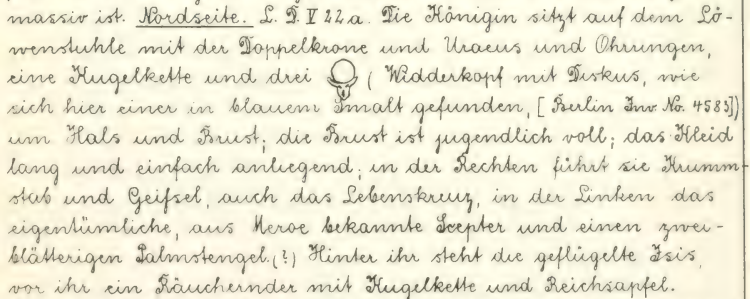 massiv ist. Nordseite. L. D. V 22 a. Die Königin sitzt auf dem Lö-
wenstuhle mit der Doppelkrone und Uraeus und Ohrringen,
eine Kugelkette und drei ( Widderkopf mit Diskus, wie
sich hier einer in blauem Smalt gefunden, [ Berlin Inv. No. 4583])
um Hals und Brust; die Brust ist jugendlich voll; das Kleid
lang und einfach anliegend; in der Rechten führt sie Krumm-
stab und Geifsel, auch das Lebenskreuz, in der Linken das
eigentümliche, aus Meroe bekannte Scepter und einen zwei-
blätterigen Palmstengel (?) Hinter ihr steht die geflügelte Isis,
vor ihr ein Räuchernder mit Kugelkette und Reichsapfel.